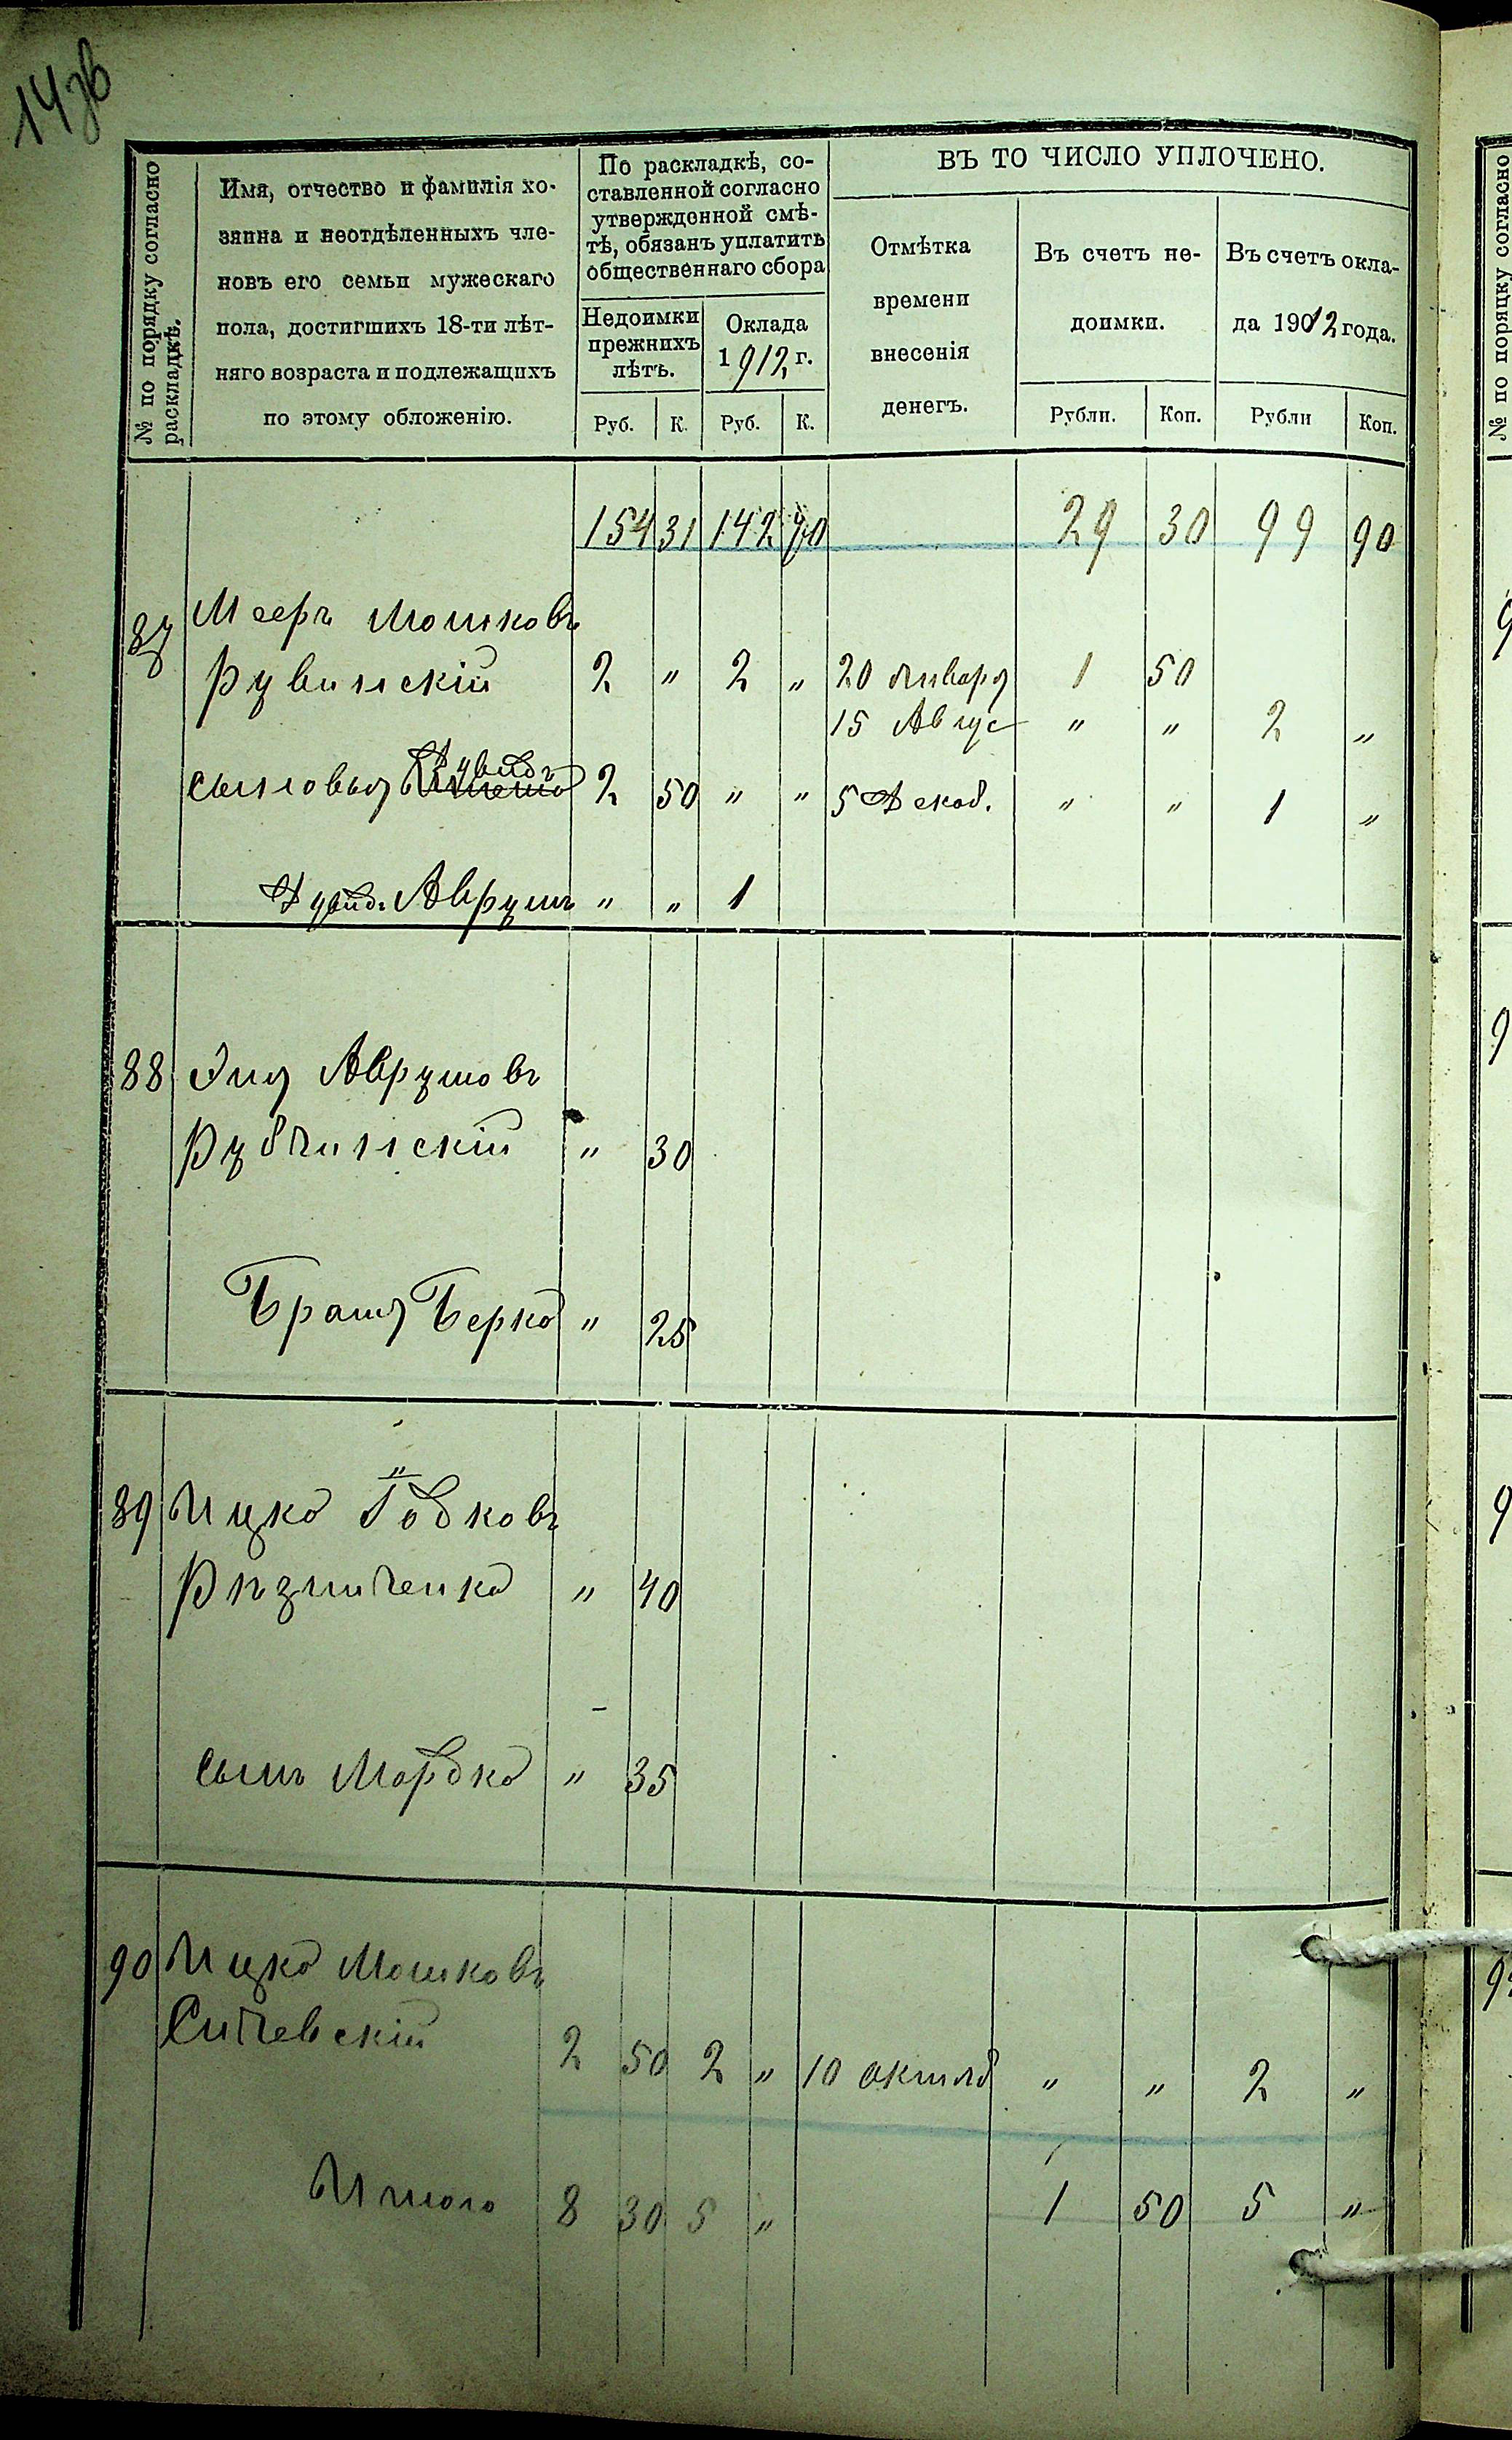 14зв
№ по порядку согласно раскладкѣ.
Имя, отчество и фамилія хо-
зяина и неотдѣленныхъ чле-
новъ его семьи мужескаго
пола, достигшихъ 18-ти лѣт-
няго возраста и подлежащихъ
по этому обложенію.
По раскладкѣ, со-
ставленной согласно
утвержденной смѣ-
тѣ, обязанъ уплатить
общественнаго сбора
Недоимки
прежнихъ
лѣтъ.
Оклада
1912 г.
Руб. К. Руб. К.
ВЪ ТО ЧИСЛО УПЛОЧЕНО.
Отмѣтка
времени
внесенія
денегъ.
Въ счетъ не-
доимки.
Рубли. Коп.
Въ счетъ окла-
да 1912 года.
Рубли Коп.
154 31 142 70 29 30 99 90
87 Мееръ Мошковъ
Рувинскій 2 " 2 " 20 Января 1 50
15 Авгус " " 2 "
Дувидъ
сыновья 2 50 " " 5 Декаб. " " 1 "
Дувид. Аврумъ " " 1
88 Эля Аврумовъ
Рубчинскій " 30
Братъ Берко " 25
89 Ицко Іовковъ
Рѣзниченко " 40
сынъ Мордко " 35
90 Ицко Мошковъ
Сичевскій 2 50 2 " 10 октяб " " 2 "
Итого 8 30 5 " 1 50 5 "
№ по порядку согласно